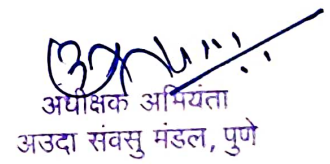 अधीक्षक अभियंता
अउदा संवसु मंडल, पुणे